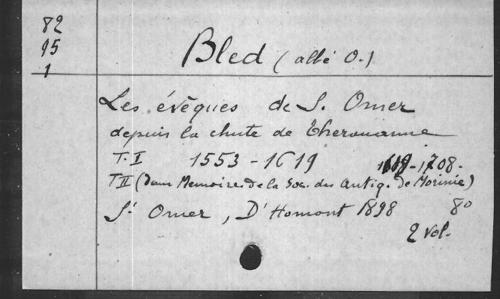 82
95
1
Bled (abbé O.)
Les évêques de S. Omer
depuis la chute de Therouanne
T. I 1553-1619 1619-1708.
T II (dans Memoires de la Soc. des Antiq. de Morinie)
St Omer, D'Homont 1898 8º
2 vol.